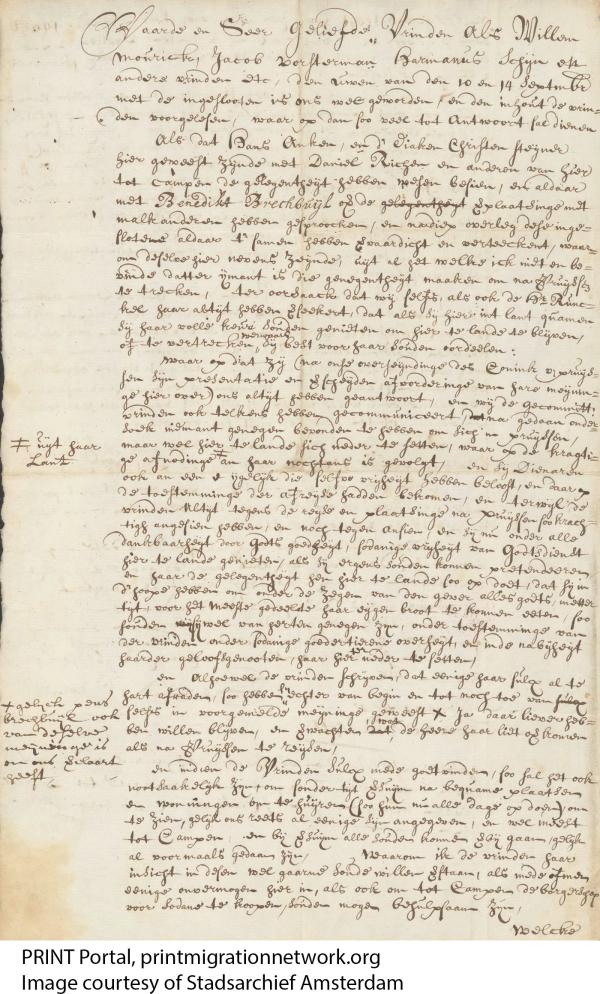 Waarde en Seer Geliefde Vrinden Als Willem
Mourick, Jacob Vorsterman, Harmanus Schijn en
andere vrinden etc, den uwen van den 10 en 14 Septmbr
met de ingeslooten is ons wel geworden, en den inhout de vrin-
den voorgelesen, waar op dan soo veel tot Antwoort sal dienen
Als dat Hans Anken, en d' Diaken Christen Steyner
hier geweest zijnde met Daniel Richen en anderen van hier
tot Campen de gelegentheijt hebben wesen besien, en aldaar
met Benedikt Brechbuyl op de gelegentheijt
malkanderen hebben gesproocken, en naediep overleg dese inge-
slotene aldaar t' samen hebben en verteeckent, waar-
om deselve hier nevens zeijnde, uijt al het welke ick niet en be-
vinde datter ijmant is die genegentheijt maaken om na Pruijssen
te trecken, ter oorsaack dat wij selfs, als ook de Hr Runc-
kel haar altijt hebben, dat als sij hier int lant quamen
sij haar volle keur souden genieten om hier te lande te blijven,
of te vertrecken, sij best voor haar souden oordeelen:
Waar op dat zij (na onse overseijndinge des Conink v pruijs-
sen sijn presentatie en afvorderinge van hare meijnin-
ge hier over) ons altijt hebben geantwoort, en wij de gecommitt:
vrinden ook telkens hebben gecommuniceert, na gedaan onder-
soek niemant genegen bevonden te hebben om sich na pruijssen,
maar wel hier te lande sich neder te setten, waar op de kragti-
ge afnodinge ≠ an haar nochtans is gevolgt, en sij Dienaren
≠ uijt haar
Lant
ook an een ijgelijk die selfve vrijheijt hebben belooft, en daar op
de toestemminge der afreijse hadden bekomen, en terwijl de
vrinden altijt tegens de reijse en plaatsinge na pruijssen soo krach-
tigh angesien hebben, en noch tegen ansien, en sij nu onder alle
dankbaarheijt voor Godts goedheijt, sodanige vrijheijt van Godtsdienst
hier te lande genieten, als sij ergens souden konnen pretendeeren
en haar de gelegentheijt hen hier te lande soo op doet, dat sij in
d' hoope hebben om onder de zegen van den gever alles goets, metter
tijt, voor het meeste gedeelte haar eijgen broot te konnen eeten, soo
souden wel van herten genegen zijn, onder toestemminge van
der vrinden onder sodanige goedertierene overheijt, en in de nabijheijt
haarder geloofsgenooten, haar hier neder te setten,
en Alhoewel de vrinden schrijven, dat eenige haar sulx al te
hart afraden, soo hebben echter van begin en tot noch toe van
selfs in voorgemelde meijninge geweest x Ja daar liever heb-
x gelijck
brechbuijl ook
van deselve
meijninge is
en ons
heeft
ben willen blijven, en verwachten de heere haar liet op komen
als na Pruijssen te reijsen,
en indien de Vrinden sulx mede goetvinden, soo sal het ook
nootsaakelijk zijn, om sonder tijt na bequame plaatsen
en woningen om te huijren (soo hun nu alle dage op doen) om
te zien, gelijk ons reets al eenige sijn angegeven, en wel meest
tot Campen, en bij alle souden konnen gaan, gelijk
al voormaals gedaan zijn, Waarom ik de vrinden haar
insicht in desen wel gaarne soude willen, als mede of men
eenige onvermogen hier in, als ook om tot Campen de borgerschap
voor sodane te koopen, souden mogen behulpsaam zijn,
Welcke
PRINT Portal, printmigrationnetwork.org
Image courtesy of Stadsarchief Amsterdam